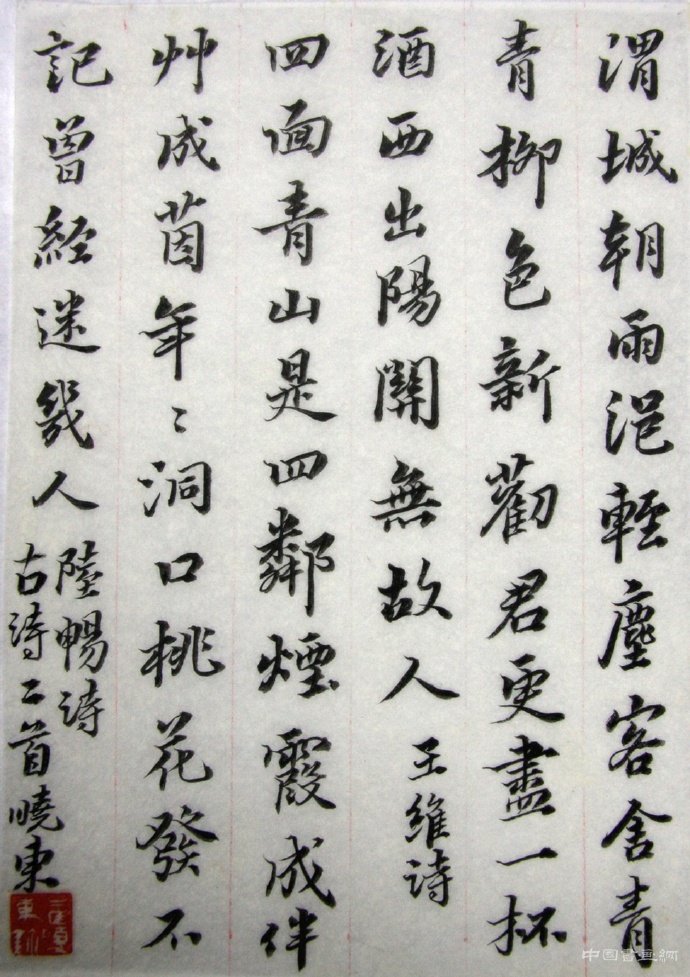 渭城朝雨浥輕塵客舍青
青柳色新勸君更盡一杯
酒西出陽關無故人
王維詩
四面青山是四鄰煙霞成伴
艸成茵年〻洞口桃花發不
記曾經迷幾人
陸暢詩
古詩二首曉東
中国書画網